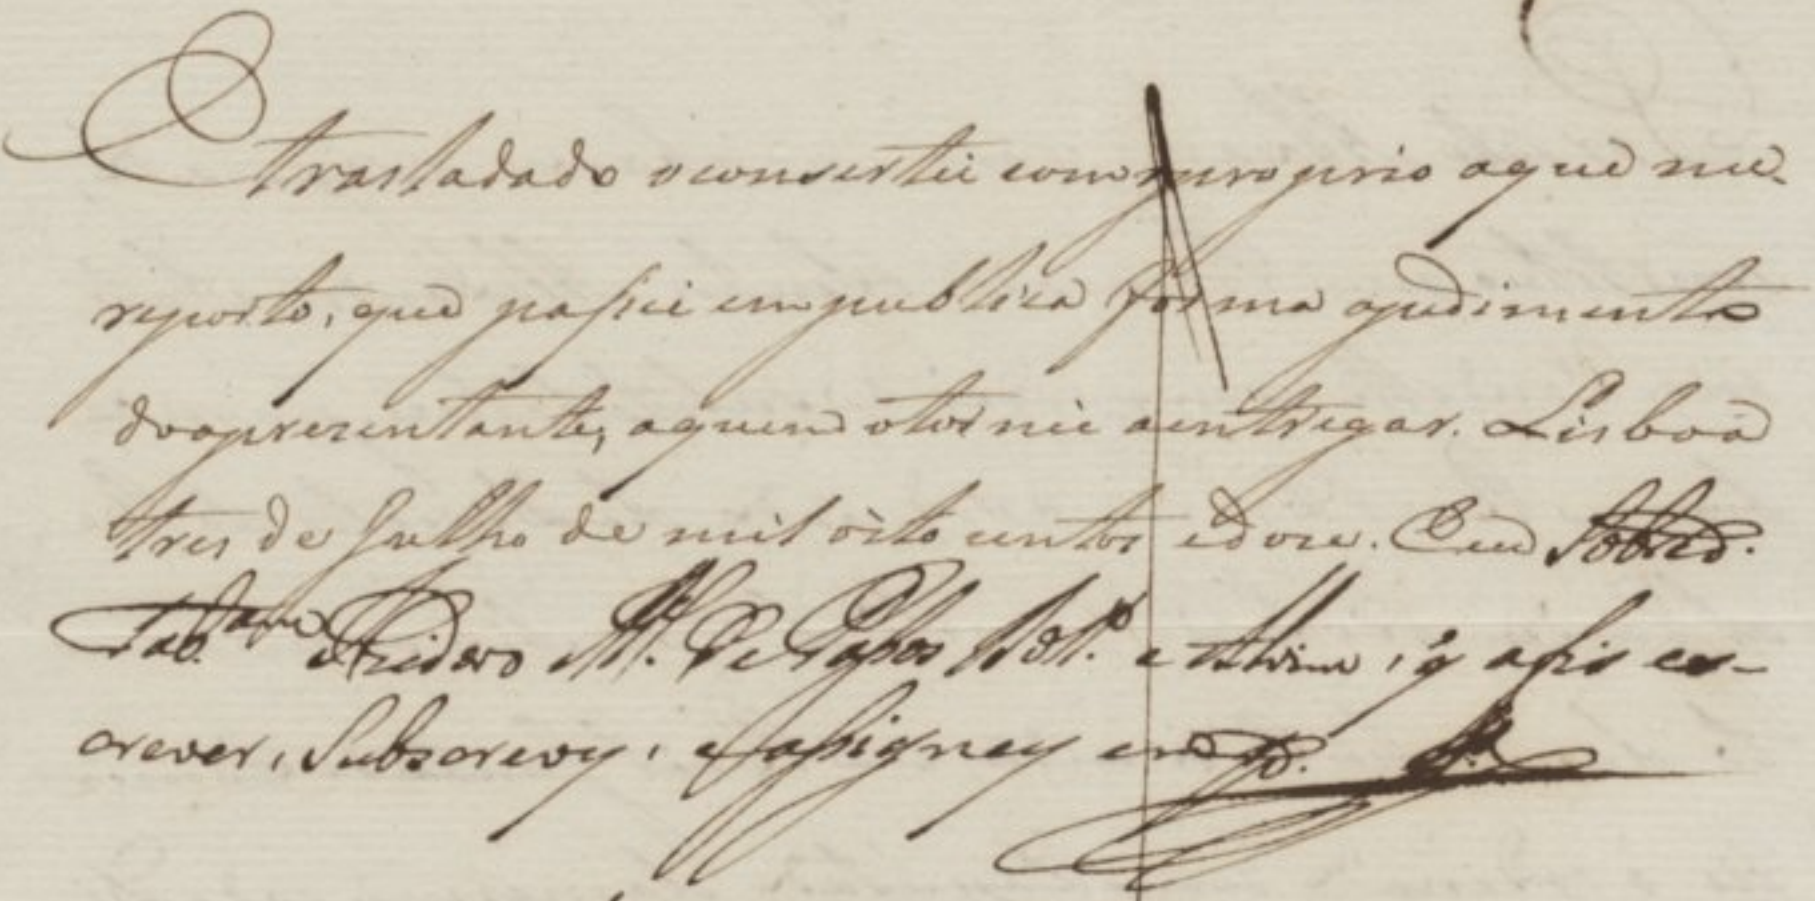 E trasladado o consertei com o proprio a que me
reporto, que passei em publica forma a pedimento
do aprezentante, a quem o tornei a entregar. Lisboa
tres de Julho de mil oito centos e doze. E eu Sobred.
Tab.am Izidoro M.el de Passos e q a fis es-
crever, Subscrevy, e assigney em p.